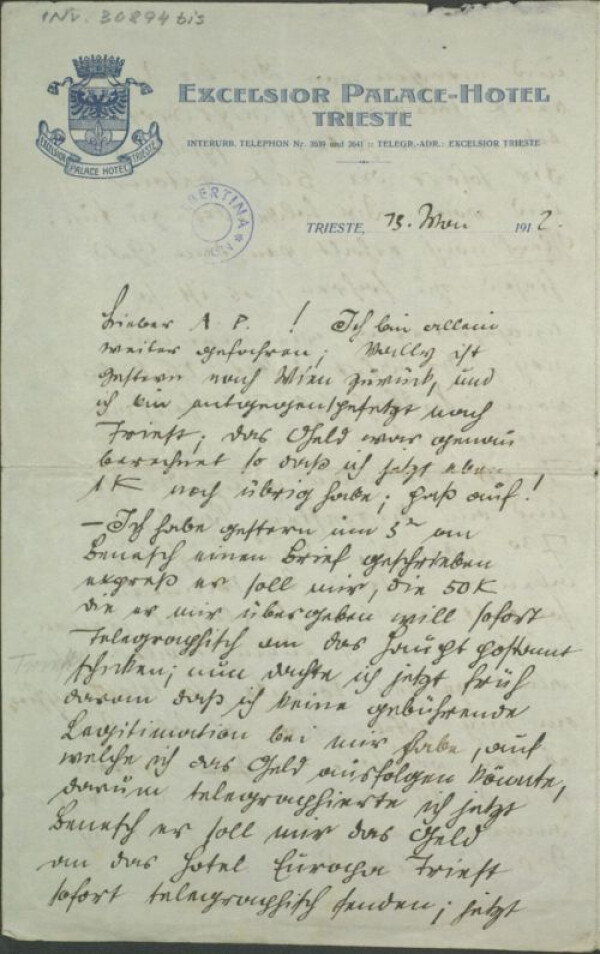 INV. 30894 bis
EXCELSIOR PALACE-HOTEL
TRIESTE
INTERURB. TELEPHON Nr. 2639 und 2641 :: TELEGR.-ADR.: EXCELSIOR TRIESTE
EXCELSIOR PALACE HOTEL TRIESTE
ALBERTINA
TRIESTE, 13. Mai 1912.
Lieber A. P. ! Ich bin allein
weiter gefahren; Wally ist
gestern nach Wien zurück, und
ich bin entgegengesetzt nach
Triest; das Geld war genau
berechnet so daß ich jetzt eben
1 K noch übrig habe; paß auf!
– Ich habe gestern um 5 an
Benesch einen Brief geschrieben
expreß er soll mir, die 50 K
die er mir übergeben will sofort
Telegraphisch an das Hauptpostamt
schicken; nun dachte ich jetzt früh
daran daß ich keine gebührende
Legitimation bei mir habe, auf
welche ich das Geld ausfolgen könnte,
darum telegraphierte ich jetzt
Benesch er soll mir das Geld
an das Hotel Europa Triest
sofort telegraphisch senden; jetzt